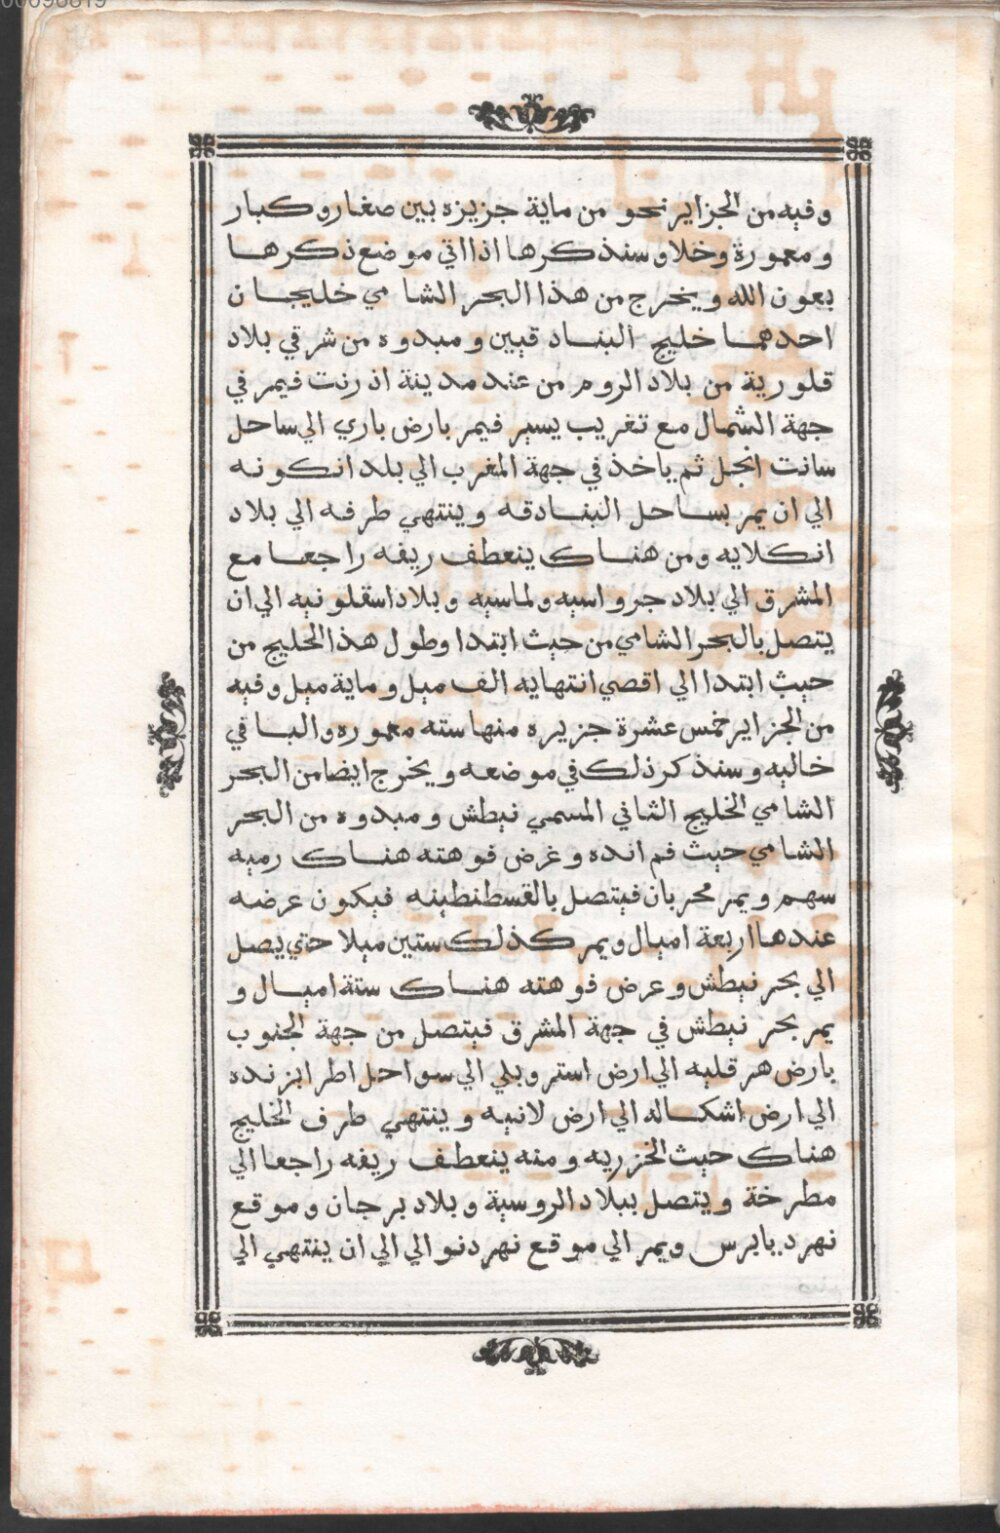 00096819
وفيه من الجزاير نحو من ماية جزيزه بين صغار وكبار
ومعمورة وخلاو سنذكرها اذا اتي موضع ذكرها
بعون الله ويخرج من هذا البحر الشامي خليجان
احدهما خليج البنادقيين ومبدوه من شرقي بلاد
قلورية من بلاد الروم من عند مدينة اذرنت فيمر في
جهة الشمال مع تغريب يسير فيمر بارض باري الي ساحل
سانت انجل ثم ياخذ في جهة المغرب الي بلد انكونه
الي ان يمر بساحل البنادقه وينتهي طرفه الي بلاد
انكلايه ومن هناك ينعطف ريفه راجعا مع
المشرق الي بلاد جرواسيه ولماسيه وبلاد اسقلونيه الي ان
يتصل بالبحر الشامي من حيث ابتدا وطول هذا الخليج من
حيث ابتدا الي اقصي انتهايه الف ميل وماية ميل وفيه
من الجزاير خمس عشرة جزيره منها سته معموره والباقي
خاليه وسنذكر ذلك في موضعه ويخرج ايضا من البحر
الشامي الخليج الثاني المسمي نيطش ومبدوه من البحر
الشامي حيث فم انده وغرض فوهته هناك رميه
سهم ويمر محربان فيتصل بالقسطنطينه فيكون عرضه
عندها اربعة اميال ويمر كذلك ستين ميلا حتي يصل
الي بحر نيطش وعرض فوهته هناك ستة اميال و
يمر بحر نيطش في جهة المشرق فيتصل من جهة الجنوب
بارض هرقليه الي ارض استروبلي الي سواحل اطرابزنده
الي ارض اشكاله الي ارض لانيه وينتهي طرف الخليج
هناك حيث الخزريه ومنه ينعطف ريفه راجعا الي
مطرخة ويتصل ببلاد الروسية وبلاد برجان وموقع
نهر دبابرس ويمر الي موقع نهر دنو الي الي ان ينتهي الي